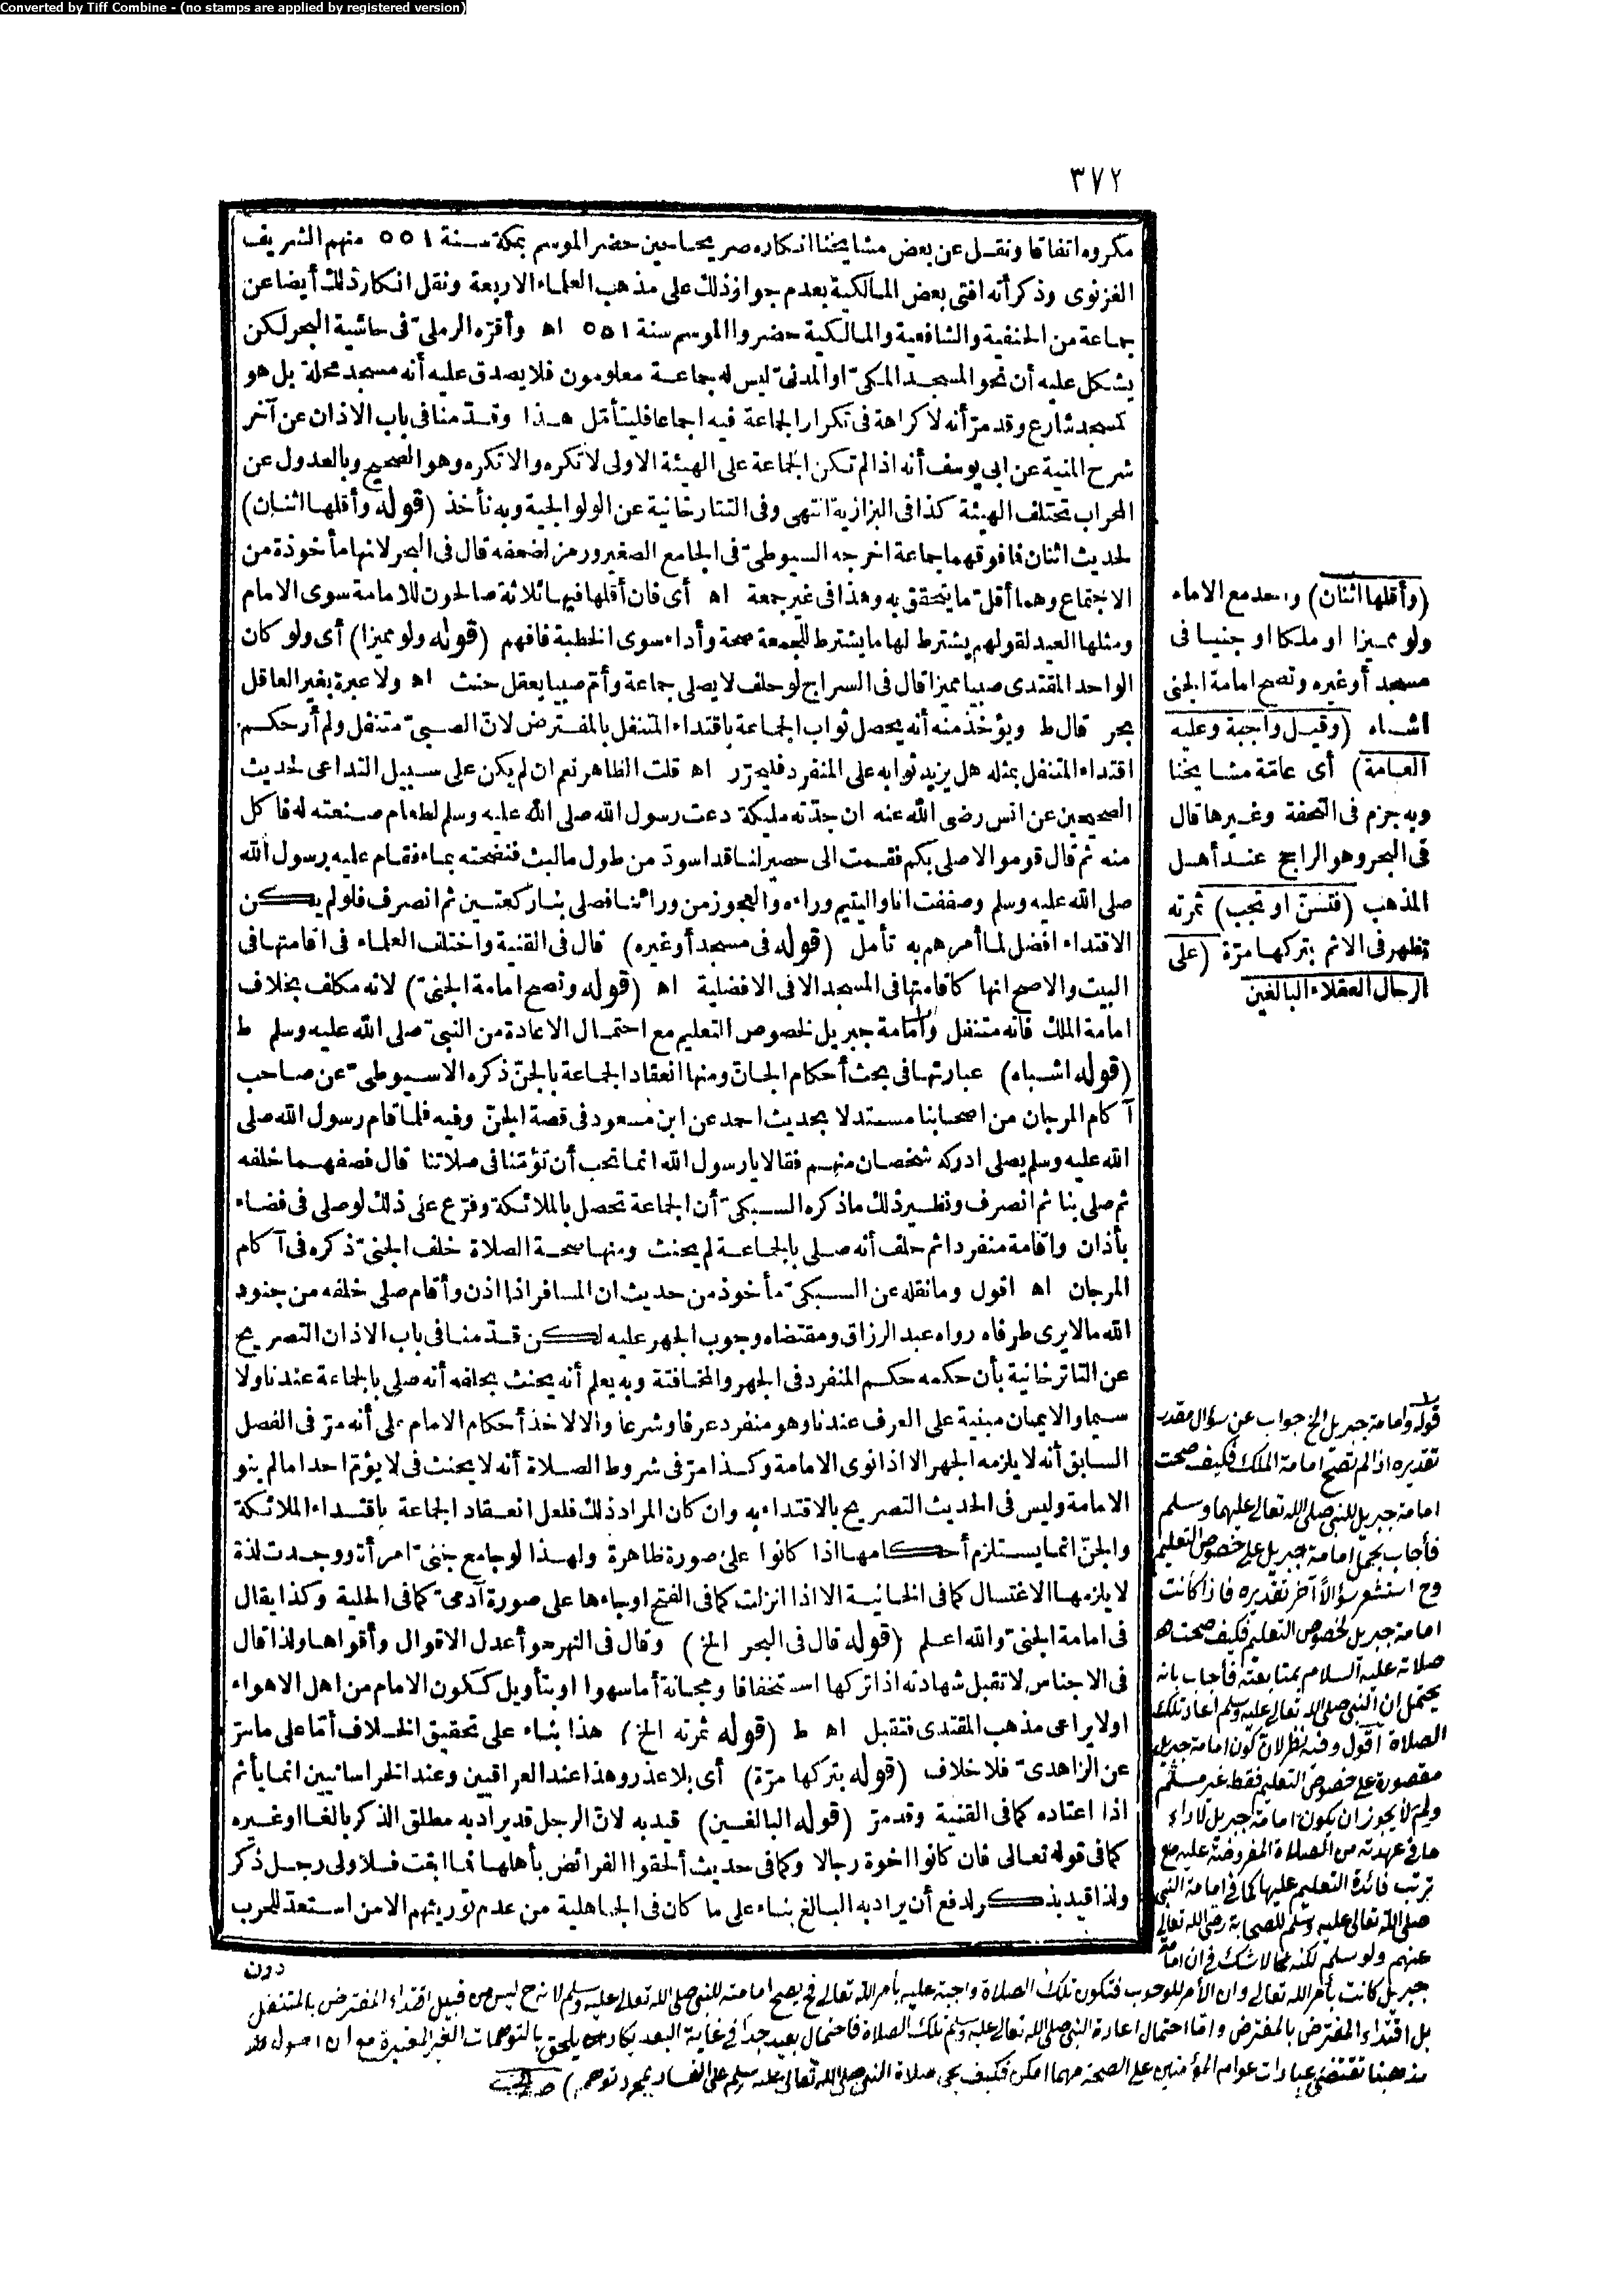 Converted by Tiff Combine - (no stamps are applied by registered version)
٣٧٢
مكروه اتفاقا ونقل عن بعض مشايخنا انكاره صريحا حين حضر الموسم بمكة سنة ٥٥١ منهم الشريف
الغزنوى وذكر أنه افتى بعض المالكية بعدم جواز ذلك على مذهب العلماء الاربعة ونقل انكار ذلك أيضا عن
جماعة من الحنفية والشافعية والمالكية حضروا الموسم سنة ٥٥١ اه وأقرّه الرملىّ فى حاشية البحر لكن
يشكل عليه أن نحو المسجد المكىّ او المدنىّ ليس له جماعة معلومون فلا يصدق عليه أنه مسجد محلة بل هو
كمسجد شارع وقد مرّ أنه لا كراهة فى تكرار الجماعة فيه اجماعا فليتأمّل هذا وقدّمنا فى باب الاذان عن آخر
شرح المنية عن ابى يوسف أنه اذا لم تكن الجماعة على الهيئة الاولى لا تكره والا تكره وهو الصحيح وبالعدول عن
المحراب تختلف الهيئة كذا فى البزازية انتهى وفى التتارخانية عن الولوالجية وبه نأخذ (قوله وأقلها اثنان)
لحديث اثنان فما فوقهما جماعة اخرجه السيوطىّ فى الجامع الصغير ورمز لضعفه قال فى البحر لانها مأخوذة من
الاجتماع وهما أقلّ ما يتحقق به وهذا فى غير جمعة اه أى فان أقلها فيها ثلاثة صالحون للامامة سوى الامام
ومثلها العيد لقولهم يشترط لها ما يشترط للجمعة صحة وأداء سوى الخطبة فافهم (قوله ولو مميزا) أى ولو كان
الواحد المقتدى صبيا مميزا قال فى السراج لو حلف لا يصلى جماعة وأمّ صبيا يعقل حنث اه ولا عبرة بغير العاقل
بحر قال ط ويؤخذ منه أنه يحصل ثواب الجماعة باقتداء المتنفل بالمفترض لانّ الصبىّ متنفل ولم أر حكم
اقتداء المتنفل بمثله هل يزيد ثوابه على المنفرد فليحرّر اه قلت الظاهر نعم ان لم يكن على سبيل التداعى لحديث
الصحيحين عن انس رضى الله عنه ان جدّته مليكة دعت رسول الله صلى الله عليه وسلم لطعام صنعته له فاكل
منه ثم قال قوموا لاصلى بكم فقمت الى حصير لنا قد اسودّ من طول ما لبث فنضحته بماء فقام عليه رسول الله
صلى الله عليه وسلم وصففت انا واليتيم وراءه والعجوز من ورائنا فصلى بنا ركعتين ثم انصرف فلو لم يكن
الاقتداء افضل لما أمرهم به تأمل (قوله فى مسجد أو غيره) قال فى القنية واختلف العلماء فى اقامتها فى
البيت والاصح انها كاقامتها فى المسجد الا فى الافضلية اه (قوله وتصح امامة الجنىّ) لانه مكلف بخلاف
امامة الملك فانه متنفل وامامة جبريل لخصوص التعليم مع احتمال الاعادة من النبىّ صلى الله عليه وسلم ط
(قوله اشباه) عبارتها فى بحث أحكام الجانّ ومنها انعقاد الجماعة بالجنّ ذكره الاسيوطىّ عن صاحب
آكام المرجان من اصحابنا مستدلا بحديث احمد عن ابن مسعود فى قصة الجنّ وفيه فلما قام رسول الله صلى
الله عليه وسلم يصلى ادركه شخصان منهم فقالا يا رسول الله انما نحب أن تؤمّنا فى صلاتنا قال فصفهما خلفه
ثم صلى بنا ثم انصرف ونظير ذلك ما ذكره السبكىّ أن الجماعة تحصل بالملائكة وفرّع على ذلك لو صلى فى فضاء
بأذان واقامة منفردا ثم حلف أنه صلى بالجماعة لم يحنث ومنها صحة الصلاة خلف الجنىّ ذكره فى آكام
المرجان اه اقول وما نقله عن السبكىّ مأخوذ من حديث ان المسافر اذا اذن وأقام صلى خلفه من جنود
الله ما لا يرى طرفاه رواه عبد الرزاق ومقتضاه وجوب الجهر عليه لكن قدّمنا فى باب الاذان التصريح
عن التاترخانية بأن حكمه حكم المنفرد فى الجهر والمخافتة وبه يعلم أنه يحنث بحلفه أنه صلى بالجماعة عندنا ولا
سيما والايمان مبنية على العرف عندنا وهو منفرد عرفا وشرعا والا لاخذ أحكام الامام على أنه مرّ فى الفصل
السابق أنه لا يلزمه الجهر الا اذا نوى الامامة وكذا مرّ فى شروط الصلاة أنه لا يحنث فى لا يؤمّ احدا ما لم ينو
الامامة وليس فى الحديث التصريح بالاقتداء به وان كان المراد ذلك فلعل انعقاد الجماعة باقتداء الملائكة
والجنّ انما يستلزم أحكامها اذا كانوا على صورة ظاهرة ولهذا لو جامع جنىّ امرأة ووجدت لذة
لا يلزمها الاغتسال كما فى الخانية الا اذا انزلت كما فى الفتح او جاءها على صورة آدمىّ كما فى الحلية وكذا يقال
فى امامة الجنىّ والله اعلم (قوله قال فى البحر الخ) وقال فى النهر هو أعدل الاقوال وأقواها ولذا قال
فى الاجناس لا تقبل شهادته اذا تركها استخفافا ومجانة أما سهوا او بتأويل ككون الامام من اهل الاهواء
اولا يراعى مذهب المقتدى فتقبل اه ط (قوله ثمرته الخ) هذا بناء على تحقيق الخلاف أمّا على ما مرّ
عن الزاهدىّ فلا خلاف (قوله بتركها مرّة) أى بلا عذر وهذا عند العراقيين وعند الخراسانيين انما يأثم
اذا اعتاده كما فى القنية وقد مرّ (قوله البالغين) قيد به لانّ الرجل قد يراد به مطلق الذكر بالغا او غيره
كما فى قوله تعالى فان كانوا اخوة رجالا وكما فى حديث ألحقوا الفرائض بأهلها فما ابقت فلاولى رجل ذكر
ولذا قيد بذكر لدفع أن يراد به البالغ بناء على ما كان فى الجاهلية من عدم توريثهم الا من استعدّ للحرب
دون
(وأقلها اثنان) واحد مع الامام
ولو مميزا او ملكا او جنيا فى
مسجد أو غيره وتصح امامة الجنى
اشباه (وقيل واجبة وعليه
العامة) أى عامّة مشايخنا
وبه جزم فى التحفة وغيرها قال
فى البحر وهو الراجح عند أهل
المذهب (فتسنّ او تجب) ثمرته
تظهر فى الاثم بتركها مرّة (على
الرجال العقلاء البالغين
قوله وامامة جبريل الخ جواب عن سؤال مقدر
تقديره اذا لم تصح امامة الملك فكيف صحت
امامة جبريل للنبى صلى الله تعالى عليهما وسلم
فأجاب بحمل امامة جبريل على خصوص التعليم
وح استشعر سؤالاً آخر تقديره فاذا كانت
امامة جبريل لخصوص التعليم فكيف صحت
صلاته عليه السلام بمتابعته فأجاب بانه
يحتمل ان النبى صلى الله تعالى عليه وسلم اعاد تلك
الصلاة اقول وفيه نظر لانّ كون امامة جبريل
مقصورة على خصوص التعليم فقط غير مسلّم
ولم لا يجوز ان يكون امامة جبريل لاداء
ما فى عهدته من الصلاة المفروضة عليه مع
ترتب فائدة التعليم عليها كما فى امامة النبى
صلى الله تعالى عليه وسلم للصحابة رضى الله تعالى
عنهم ولو سلم لكنه مما لا شك فى ان امامة
جبريل كانت بأمر الله تعالى وان الأمر للوجوب فتكون تلك الصلاة واجبة عليه بأمر الله تعالى فح يصح امامته للنبى صلى الله تعالى عليه وسلم لانه ح ليس من قبيل اقتداء المفترض بالمتنفل
بل اقتداء المفترض بالمفترض واما احتمال اعادة النبى صلى الله تعالى عليه وسلم تلك الصلاة فاحتمال بعيد جدا فى غاية البعد يكاد ان يلحق بالتوهمات الغير المعتبرة مع ان اصول
مذهبنا تقتضى عبارات عوام المؤمنين على الصحة مهما امكن فكيف يحمل صلاة النبى صلى الله تعالى عليه وسلم على الفساد بمجرد توهم